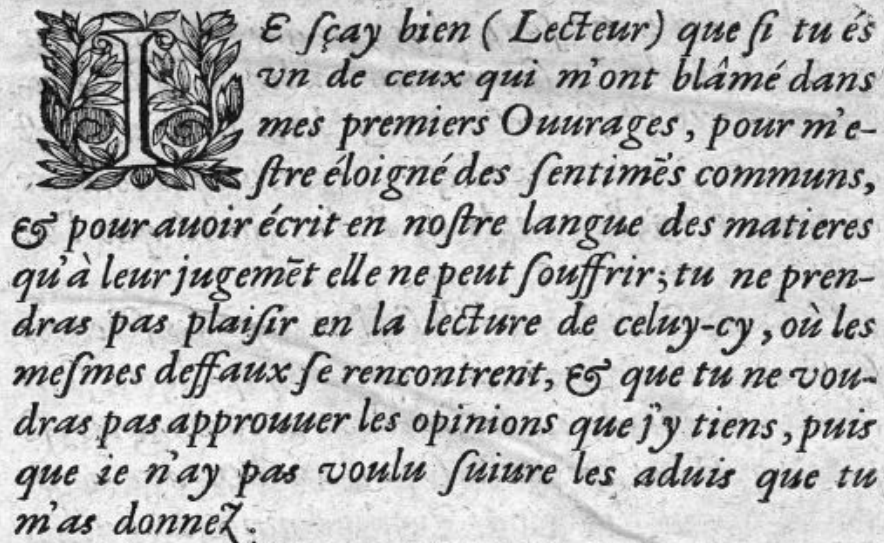 IE ſçay bien ( Lecteur) que ſi tu és
vn de ceux qui m'ont blâmé dans
mes premiers Ouurages, pour m'e-
ſtre éloigné des ſentimẽs communs,
& pour auoir écrit en noſtre langue des matieres
qu'à leur jugemẽt elle ne peut ſouffrir; tu ne pren-
dras pas plaiſir en la lecture de celuy-cy, où les
meſmes deffaux ſe rencontrent, & que tu ne vou-
dras pas approuuer les opinions que j'y tiens, puis
que ie n'ay pas voulu ſuiure les aduis que tu
m'as donnez.